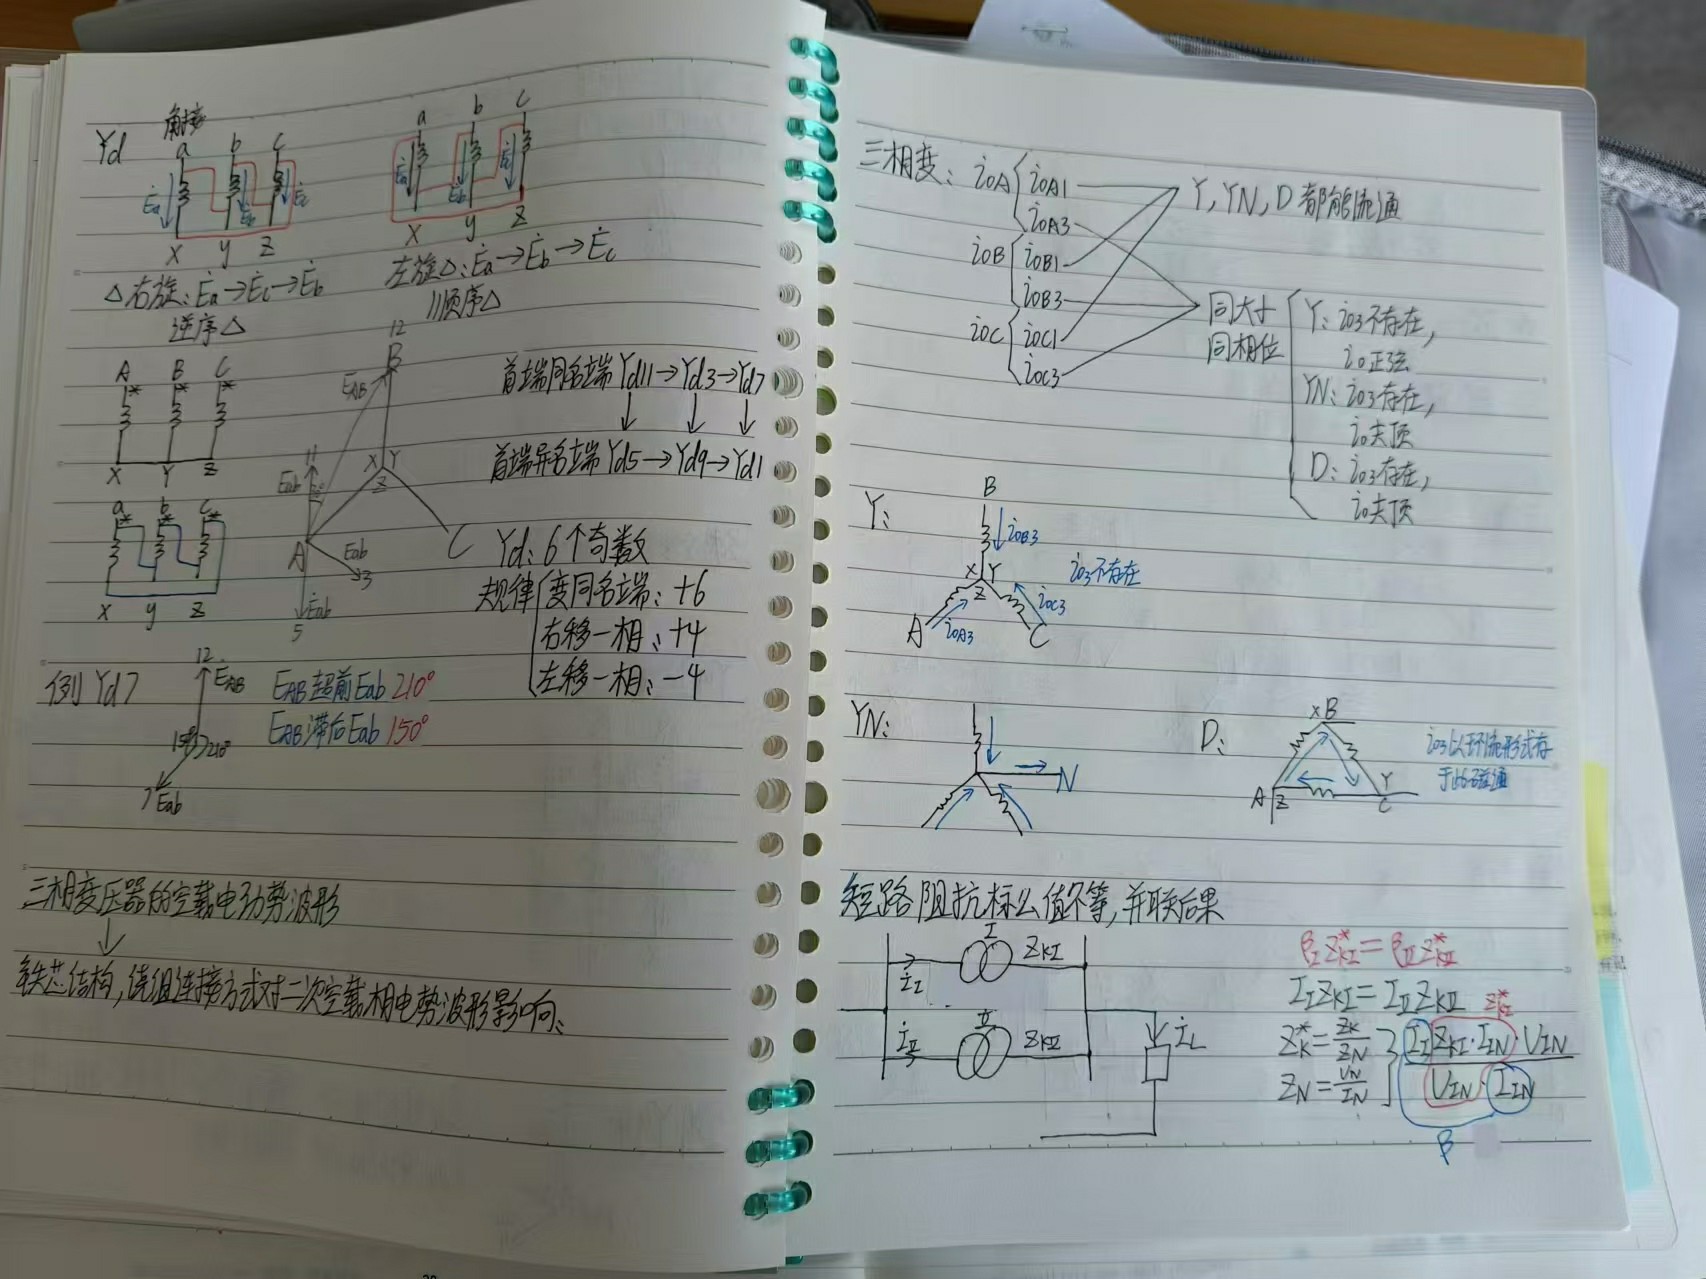 Yd 角接
a b c
Ėa Ėb Ėc
X y Z
△右旋:Ėa→Ėc→Ėb
逆序△
a b c
Ėa Ėb Ėc
X y Z
左旋△:Ėa→Ėb→Ėc
||顺序△
A B C
* * *
X Y Z
a b c
* * *
x y z
12
B
EAB
11
Eab
30°
X Y
Z
A
C
Eab
3
Ėab
5
首端同名端 Yd11→Yd3→Yd7
↓ ↓ ↓
首端异名端 Yd5→Yd9→Yd1
Yd:6个奇数
规律 变同名端:+6
右移一相:+4
左移一相:-4
例 Yd7
12
ĖAB
150° 210°
7 Ėab
EAB超前Eab 210°
EAB滞后Eab 150°
三相变压器的空载电动势波形
↓
铁芯结构,绕组连接方式对二次空载相电势波形影响、
三相变:i0A i0A1
i0A3
i0B i0B1
i0B3
i0C i0C1
i0C3
Y,YN,D都能流通
同大小
同相位
Y:i03不存在,
i0正弦
YN:i03存在,
i0尖顶
D:i03存在,
i0尖顶
Y:
B
i0B3
X Y
Z
A
C
i0A3
i0C3
i03不存在
YN:
N
D:
X B
A Z
Y
C
i03以环流形式存
短路阻抗标么值不等,并联后果
I
ZKI
İI
II
ZKII
İII
İL
βI Z*KI = βII Z*KII
II ZKI = III ZKII
Z*K = ZK/ZN
ZN = UN/IN
Z*KI
II ZKI·IIN·UIN
UIN·IIN
β